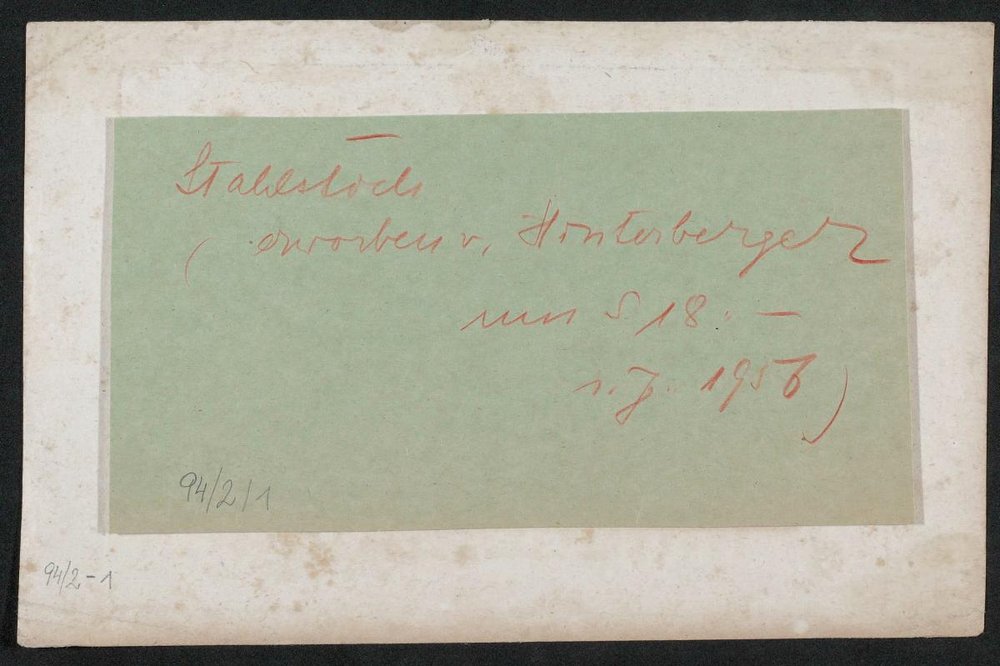 Stahlstich
(erworben v. Hinterberger
um S 18.–
i. J. 1956)
94/2/1
94/2-1